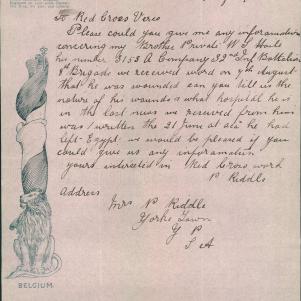 To Red Cross Vereo
Please could you give me any inforamation
concering my Brother Private W J Hails
his number 3153 A Company 32nd Inf Battalion
8th Brigade we received word on 7th August
that he was wounded can you tell us the
nature of his wounds & what hospital he is
in the last news we received from him
was written the 21 June at all he had
left Egypt we would be pleased if you
could give us any inforamation
yours interested in Red Cross work
P Riddle
Address
Mrs P Riddle
Yorke Town
Y P
S A
BELGIUM.